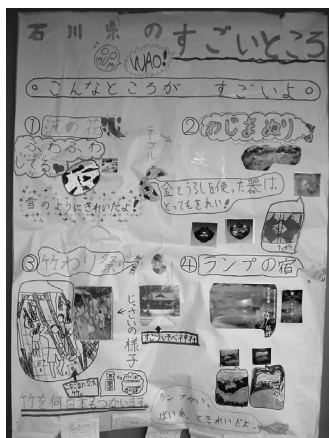 石川県の
すごいところ
WAO!
こんなところが すごいよ
① 波の花
ふわふわ
してる
雪のようにきれいだよ!
② わじまぬり
金とうるしを使った器は、
とってもきれい!
③ 竹わり祭
じっさいの様子
竹を何百本もつかいます
④ ランプの宿
ランプがいっ
ぱいあってきれいだよ。